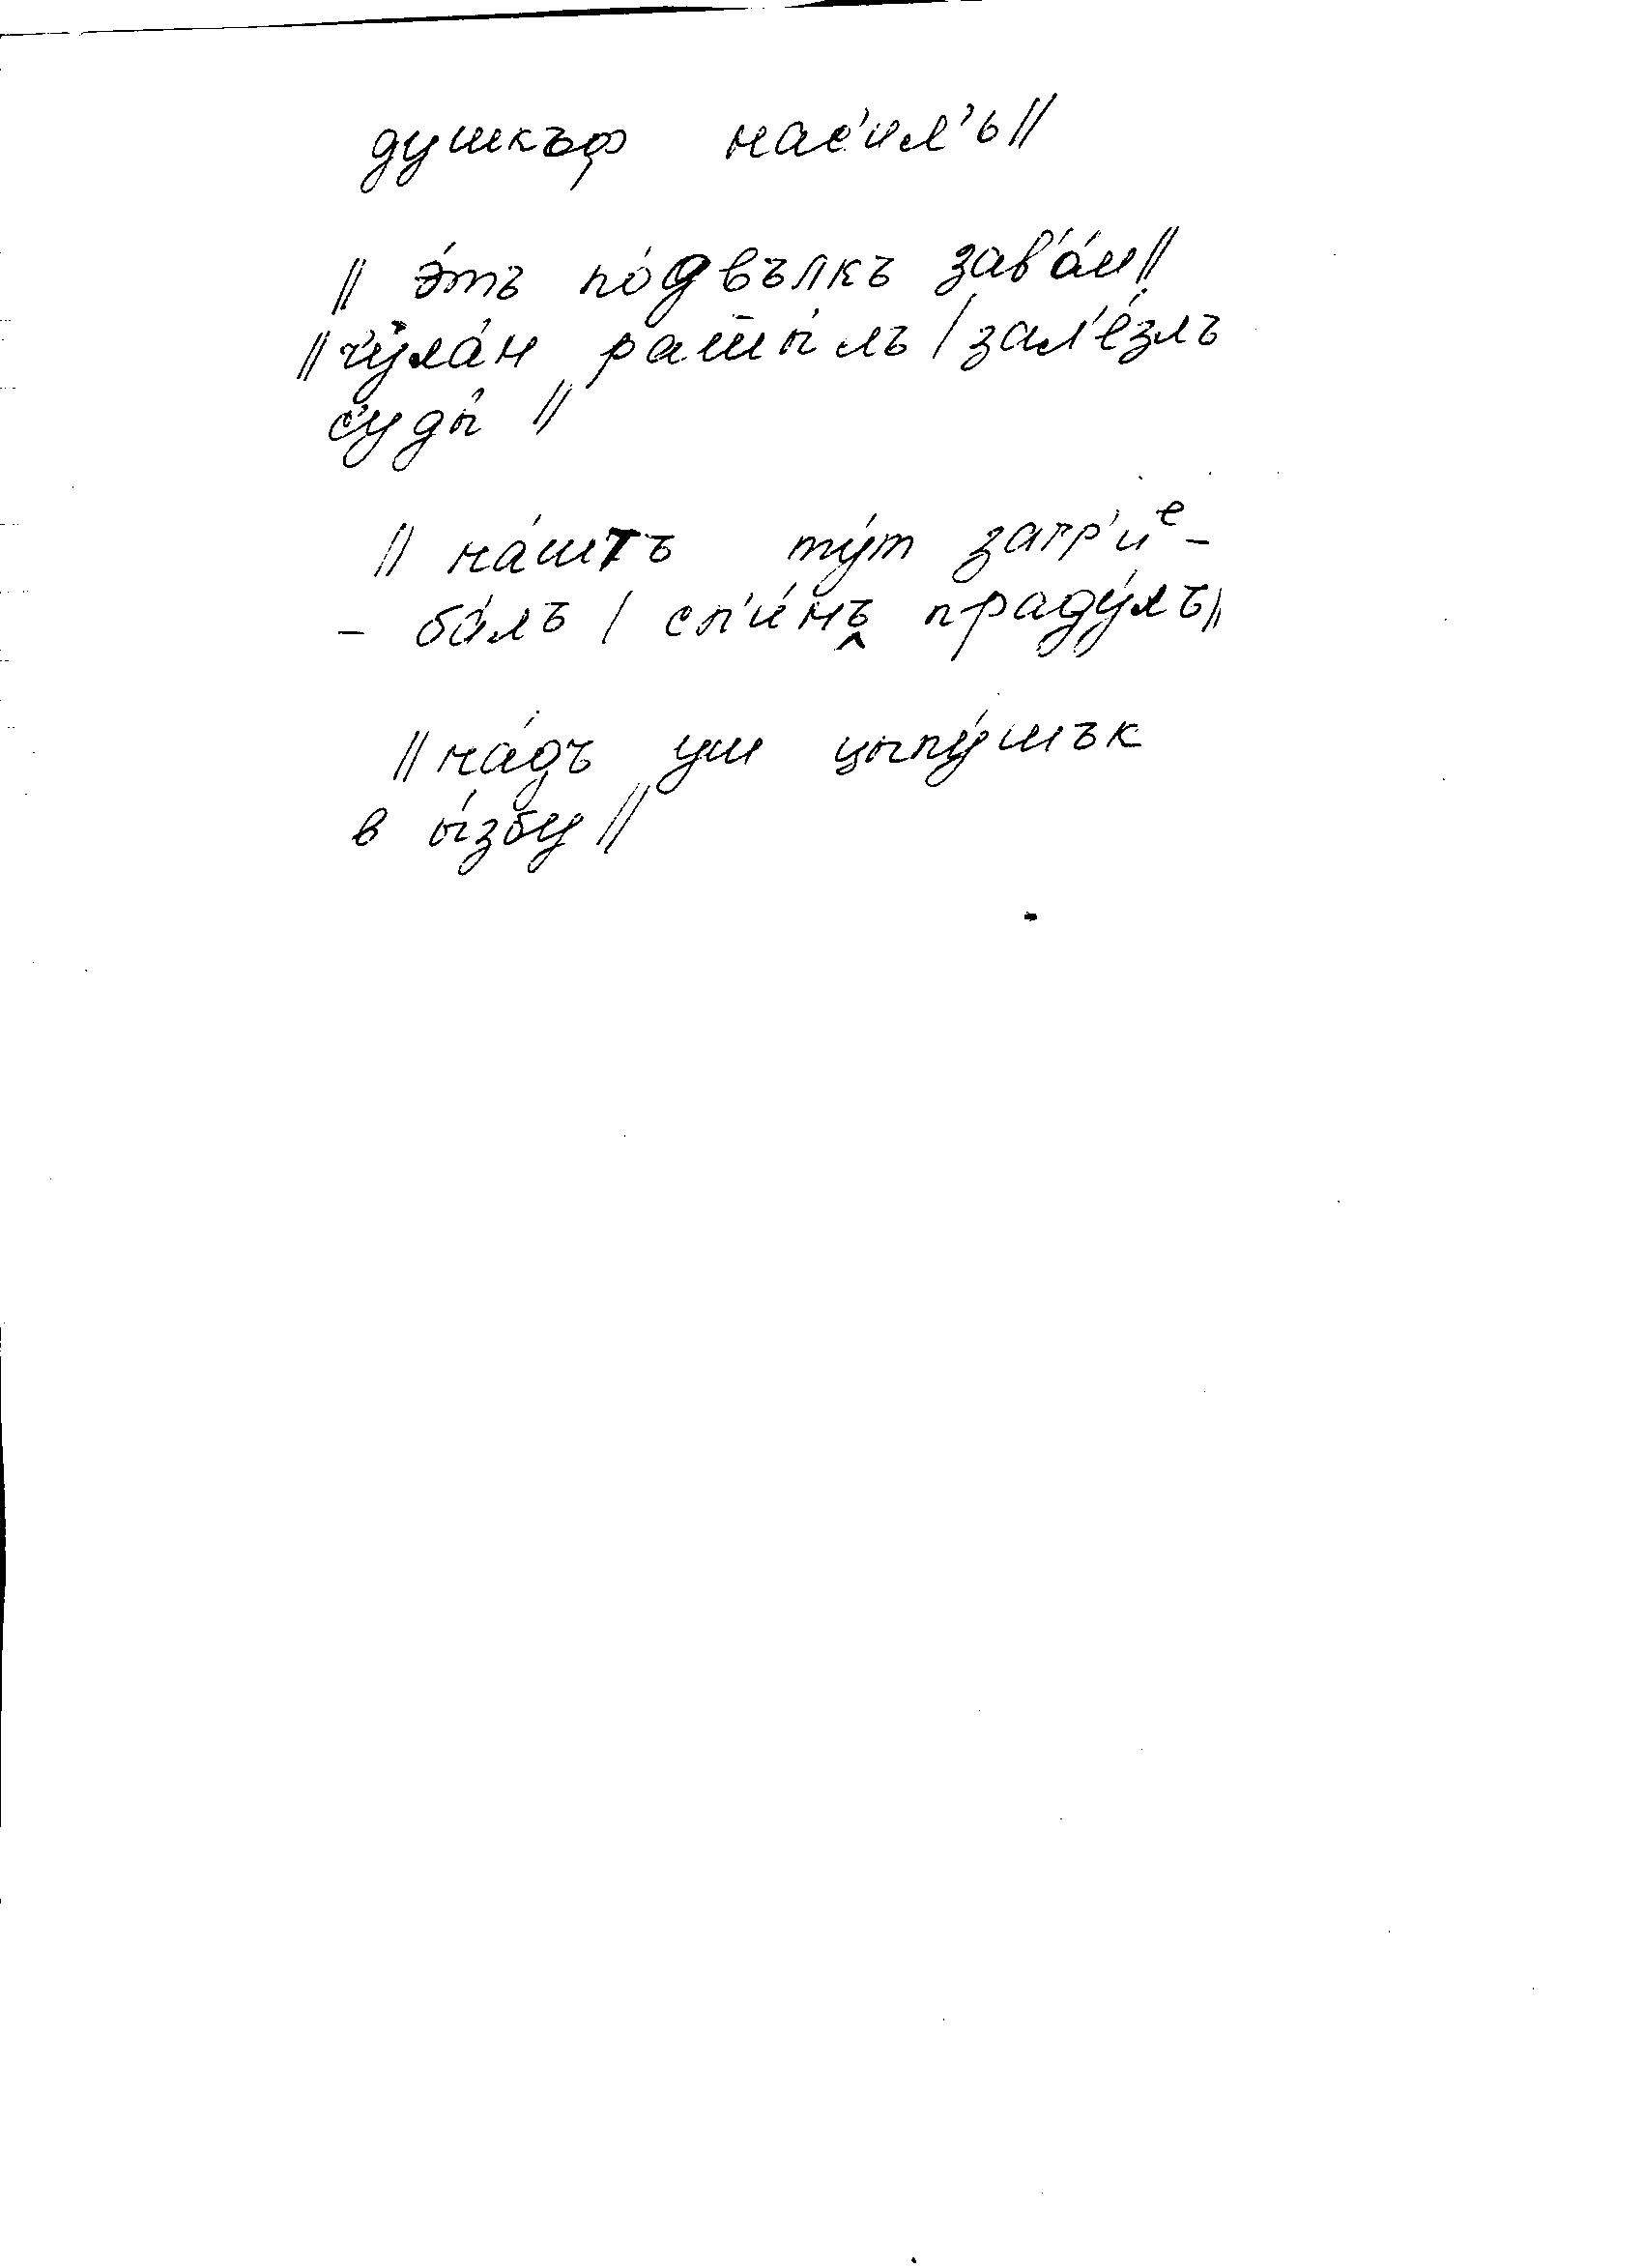 душкъф нас'ил'ь //
// э́тъ по́двълкъ зав'о́м //
// ч'ула́н раш̅ы́лъ / зал'е́злъ
с'уды́ //
// на́штъ ту́т загр'иᵉ-
- ба́лъ / сп'и́нъ праду́лъ //
// на́дъ уш цыпу́шък
в ы́збу //